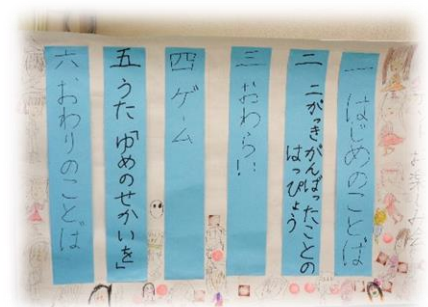 一 はじめのことば
二 二がっきがんばったことの
はっぴょう
三 おわらい
四 ゲーム
五 うた「ゆめのせかいを」
六 おわりのことば